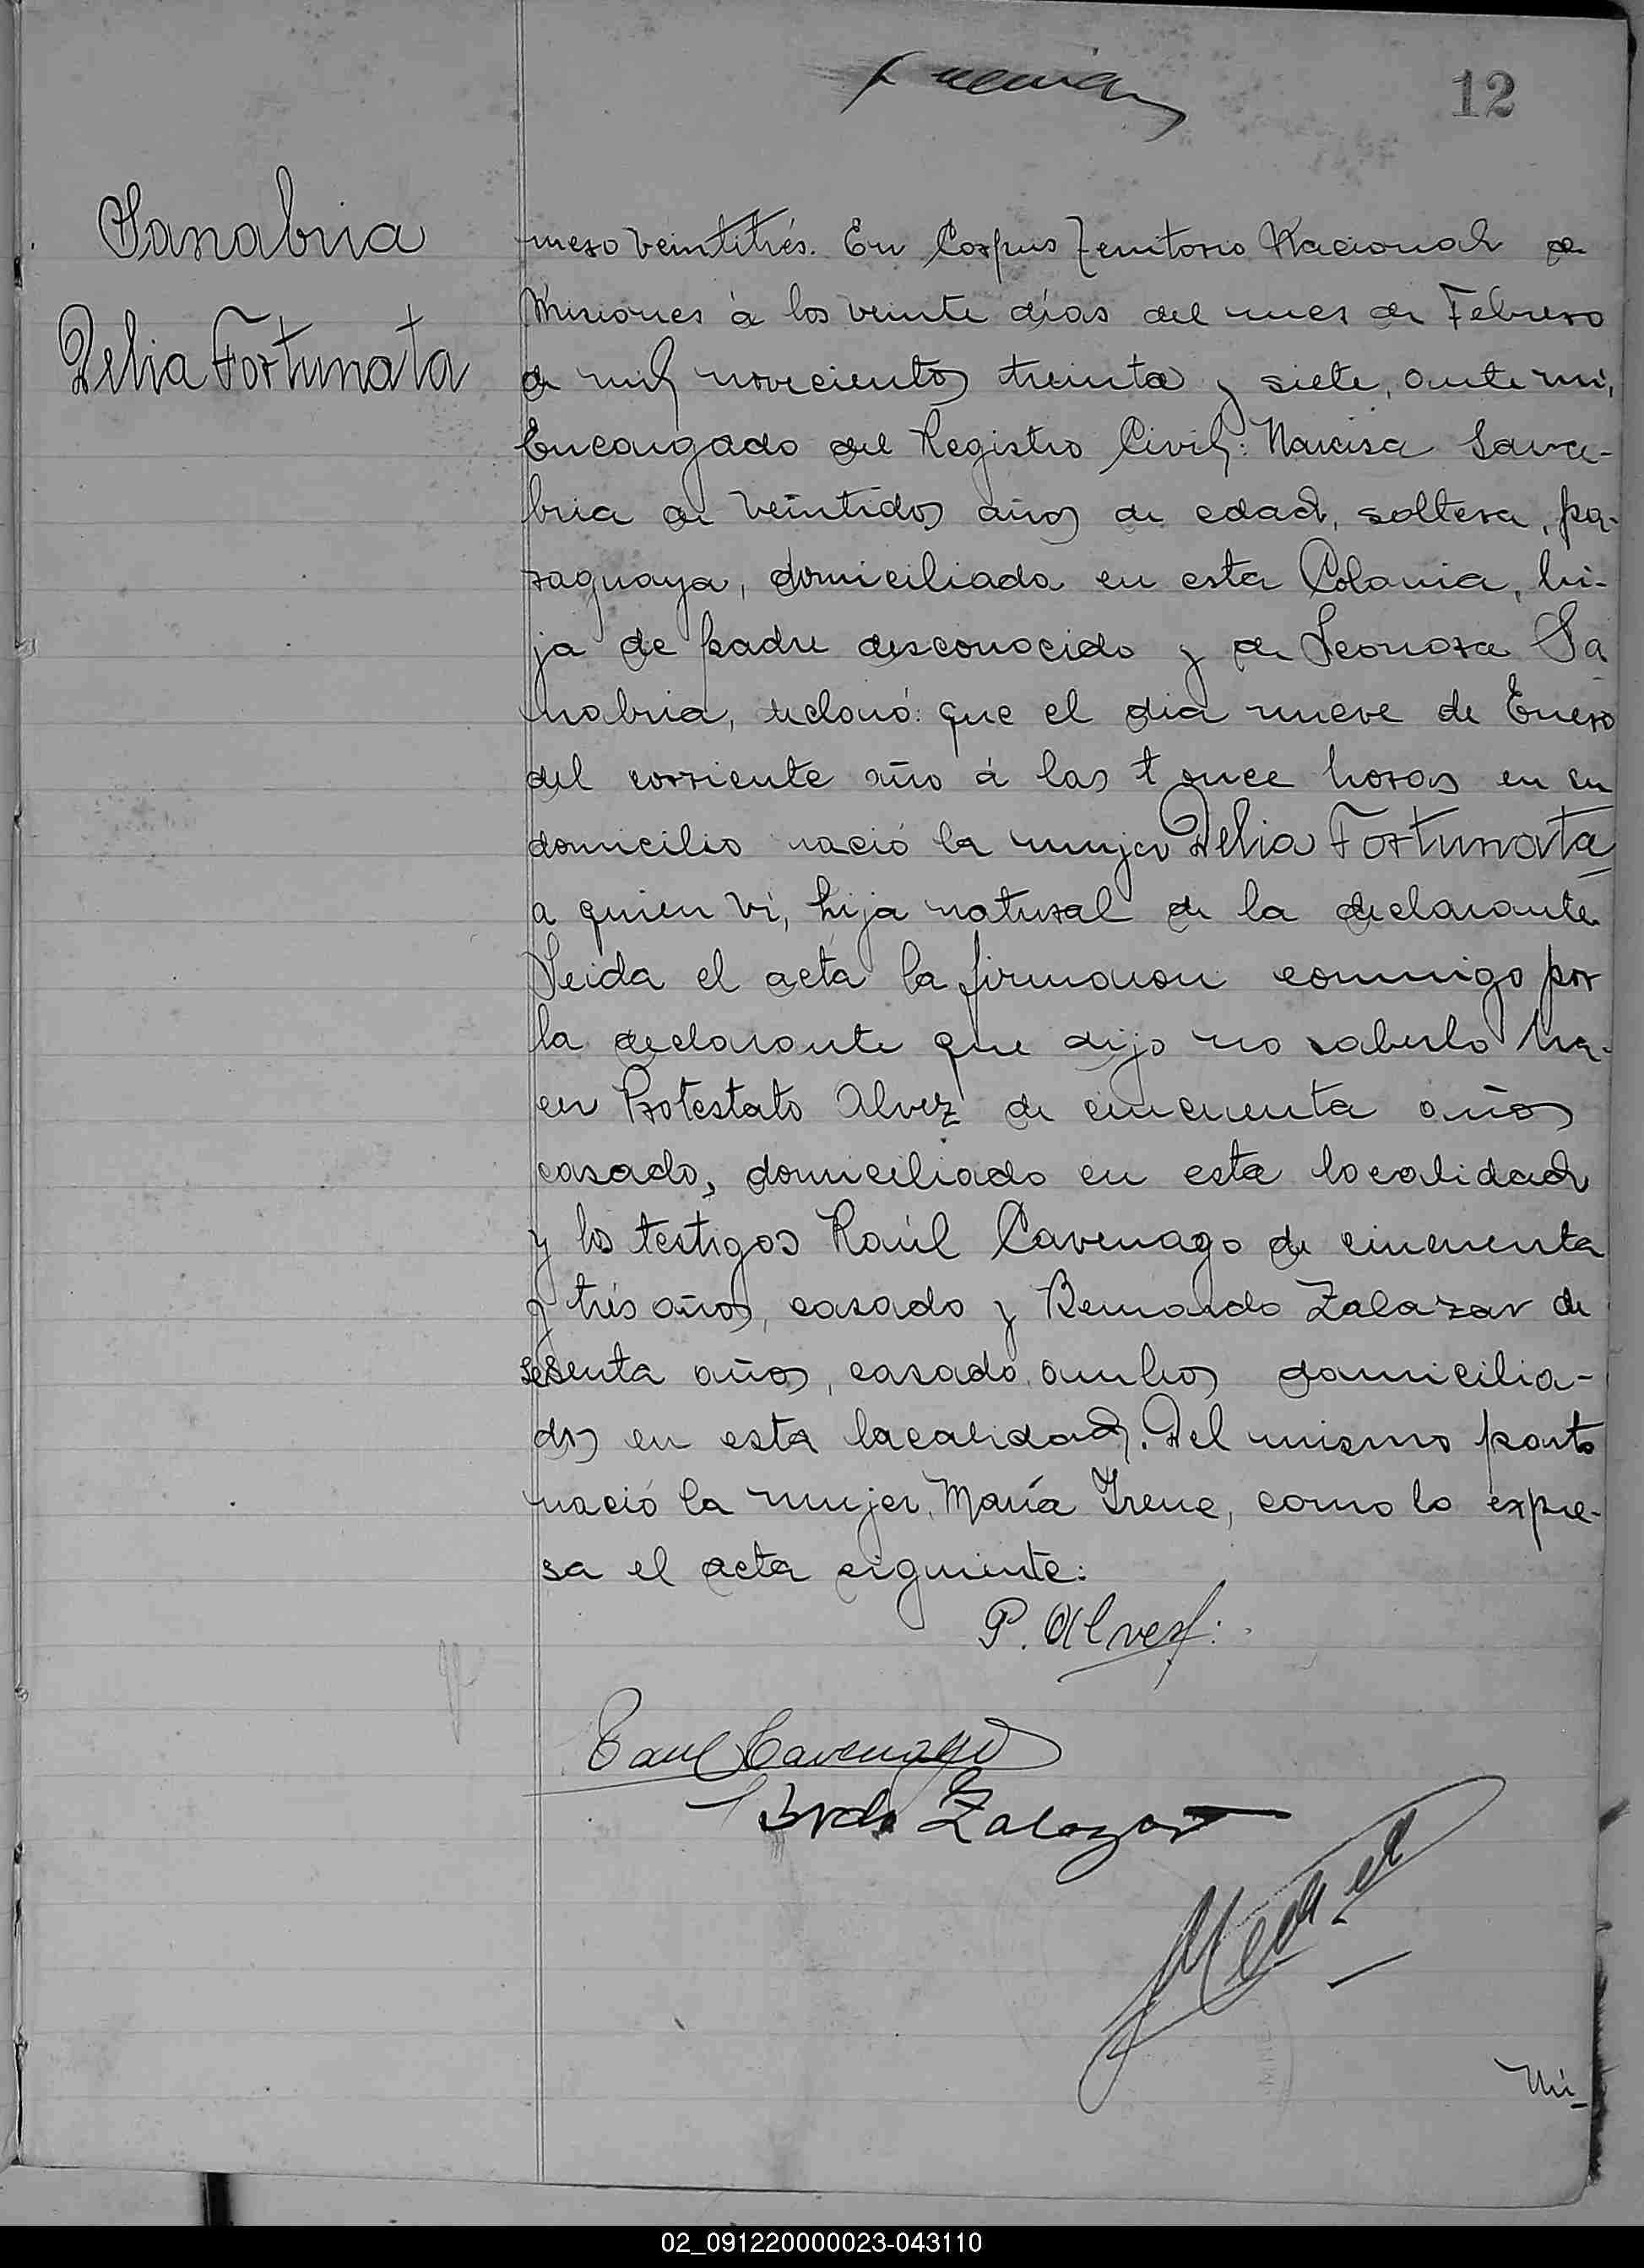 12
Sanabria
Delia Fortunata
mero veintitrés. En Corpus Territorio Nacional de
Misiones á los veinte días del mes de Febrero
de mil novecientos treinta y siete, ante mi,
Encargado del Registro Civil: Narcisa Sana-
bria de veintidos años de edad, soltera, pa-
raguaya, domiciliada en esta Colonia, hi-
ja de padre desconocido y de Leonora Sa
nabria, declaró: que el día nueve de Enero
del corriente año á las t once horas en su
domicilio nació la mujer Delia Fortunata
a quien vi, hija natural de la declarante.
Leida el acta la firmaron conmigo por
la declarante que dijo no saberlo ha-
cer Protestato Alvez de cincuenta años
casado, domiciliado en esta localidad
y los testigos Raúl Cavenago de cincuenta
y trés años, casado y Bernardo Zalazar de
sesenta años, casado, ambos domicilia-
dos en esta localidad. Del mismo parto
nació la mujer, María Irene, como lo expre-
sa el acta siguiente:
P. Alvez.
Raul Cavenago
Brdo Zalazar
Nú-
02_091220000023-043110